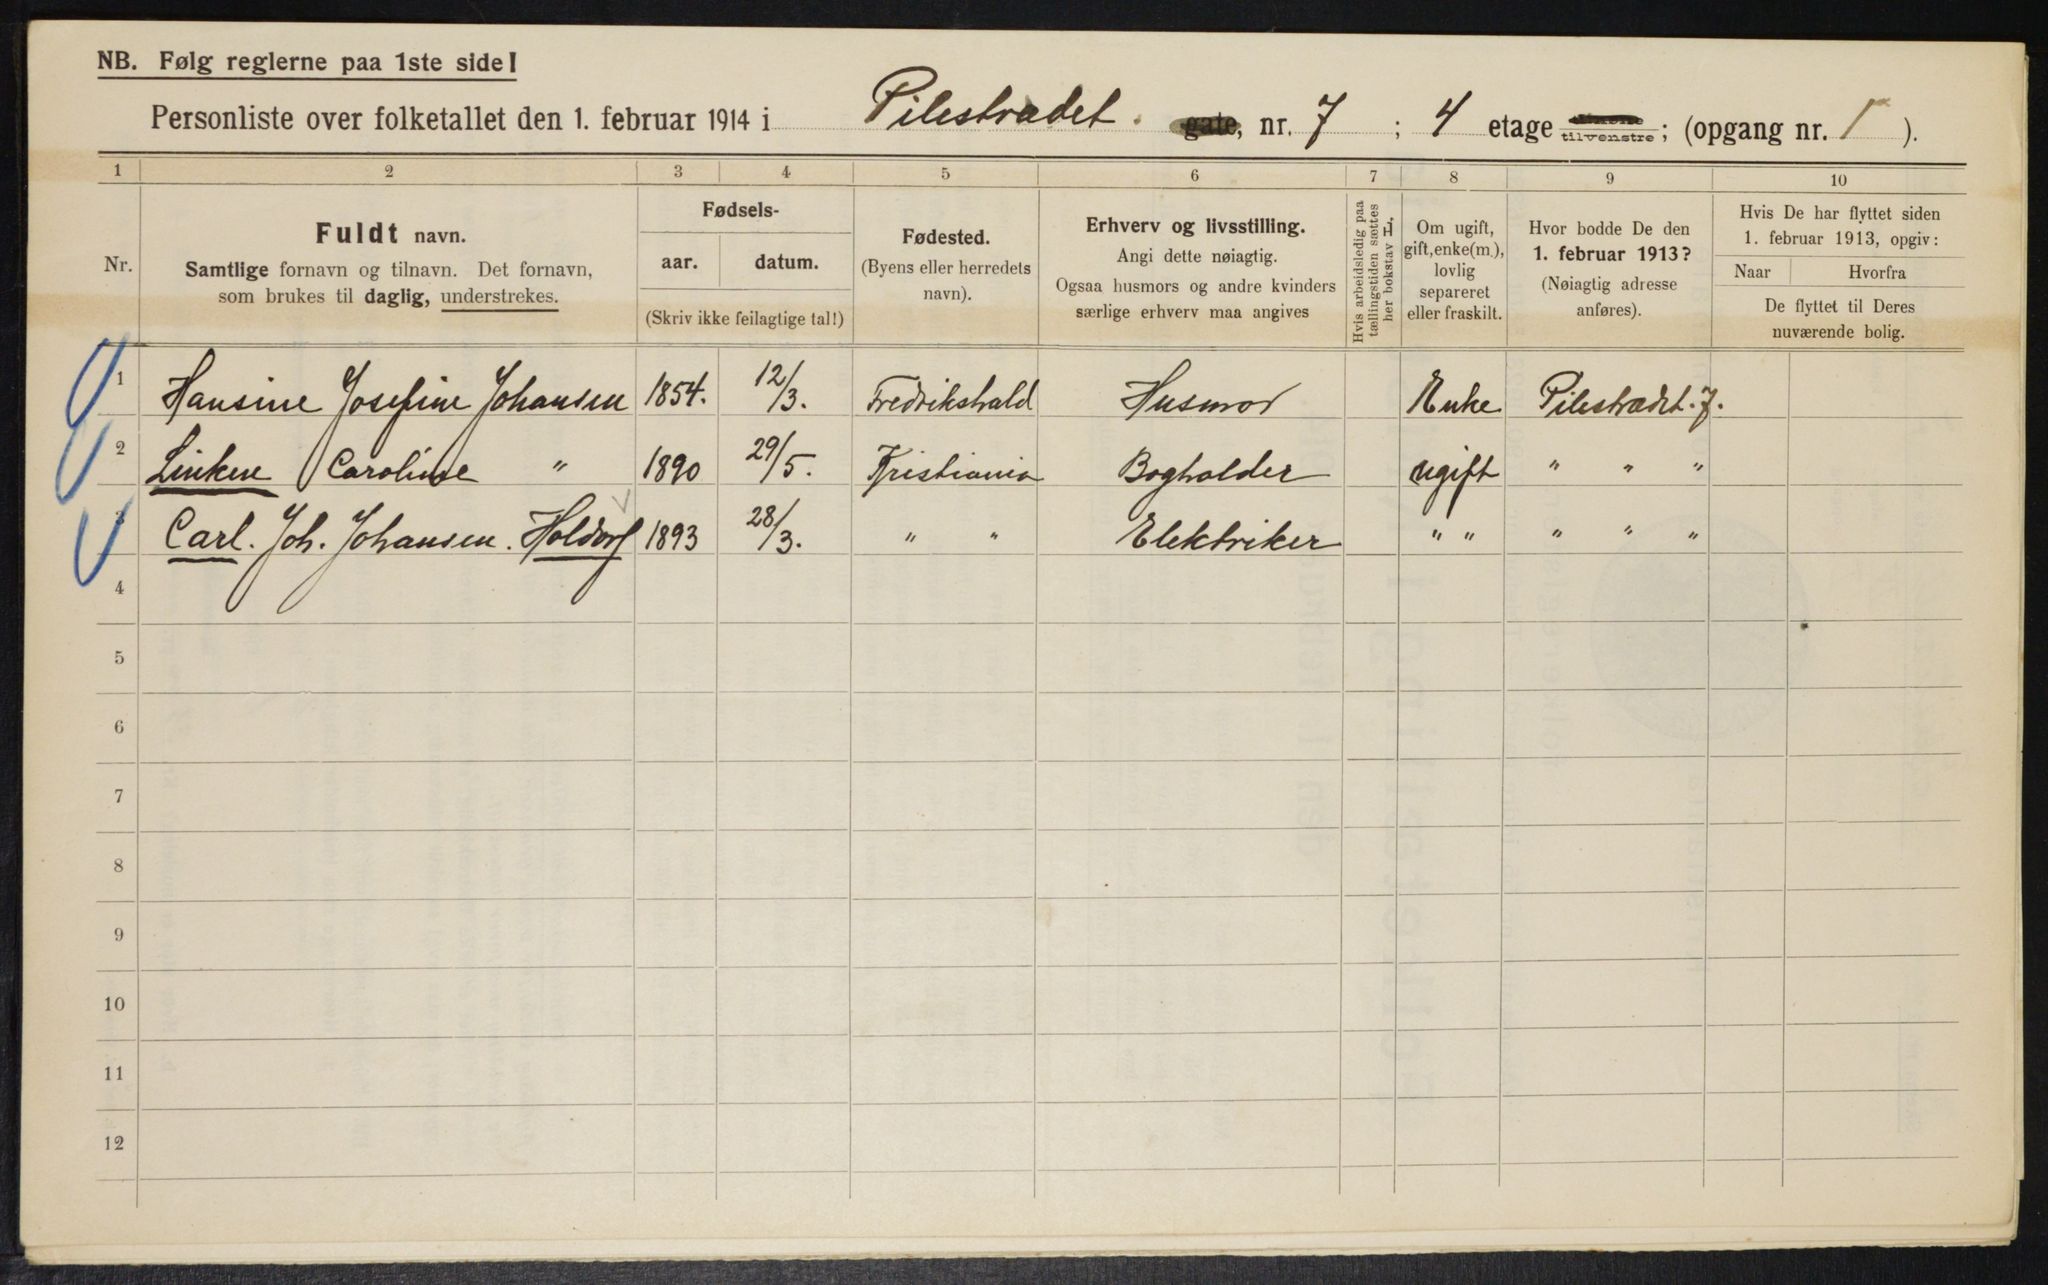 NB. Følg reglerne paa 1ste side!
Personliste over folketallet den 1. februar 1914 i Pilestrædet. gate, nr. 7 ; 4 etage tilvenstre; (opgang nr. 1 ).
1 2 3 4 5 6 7 8 9 10
Nr.
Fuldt navn.
Samtlige fornavn og tilnavn. Det fornavn,
som brukes til daglig, understrekes.
Fødsels-
aar. datum.
(Skriv ikke feilagtige tal!)
Fødested.
(Byens eller herredets
navn).
Erhverv og livsstilling.
Angi dette nøiagtig.
Ogsaa husmors og andre kvinders
særlige erhverv maa angives
Hvis arbeidsledig paa
tællingstiden sættes
her bokstav L.
Om ugift,
gift, enke(m.),
lovlig
separeret
eller fraskilt.
Hvor bodde De den
1. februar 1913?
(Nøiagtig adresse
anføres).
Hvis De har flyttet siden
1. februar 1913, opgiv:
Naar Hvorfra
De flyttet til Deres
nuværende bolig.
1 Hansine Josefine Johansen 1854. 12/3. Fredrikshald Husmor Enke Pilestrædet. 7.
2 Caroline " 1890 29/5. Kristiania Bogholder ugift " " "
3 Carl. Joh. Johansen. Holdorf 1893 28/3. " " Elektriker " " " " "
4
5
6
7
8
9
10
11
12